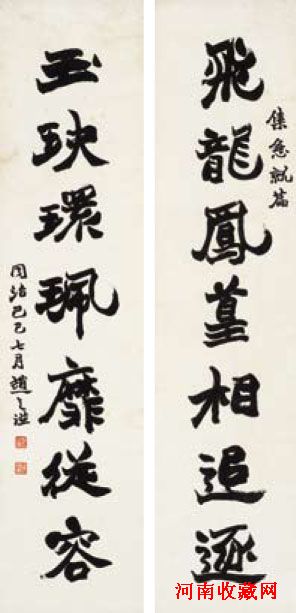 集急就篇
飛龍鳳皇相追逐
玉玦環珮靡從容
同治己巳七月趙之謙
河南收藏网